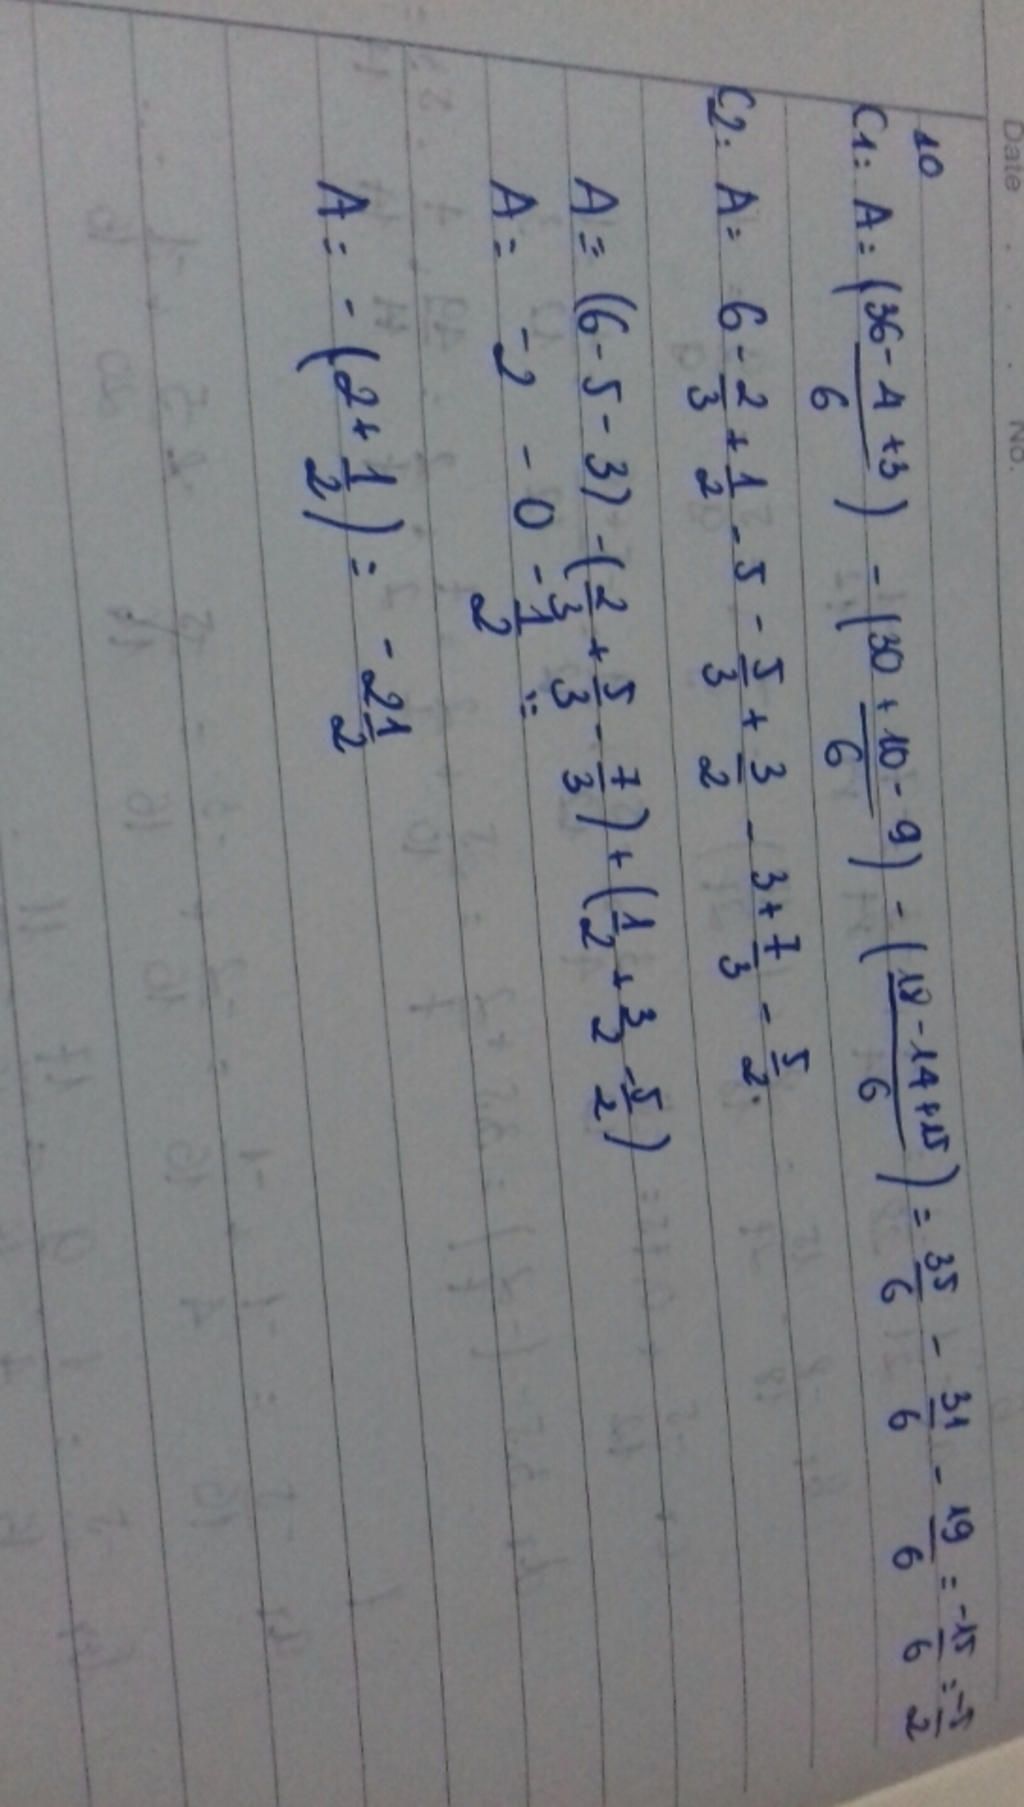 Date No.
10
C1: A = (36 - 4 + 3 / 6) - (30 + 10 - 9 / 6) - (18 - 14 + 15 / 6) = 35/6 - 31/6 - 19/6 = -15/6 = -5/2
C2: A = 6 - 2/3 + 1/2 - 5 - 5/3 + 3/2 - 3 + 7/3 - 5/2.
A = (6 - 5 - 3) - (2/3 + 5/3 - 7/3) + (1/2 + 3/2 - 5/2)
A = -2 - 0 - 1/2 =
A = - (2 + 1/2) = -2 1/2